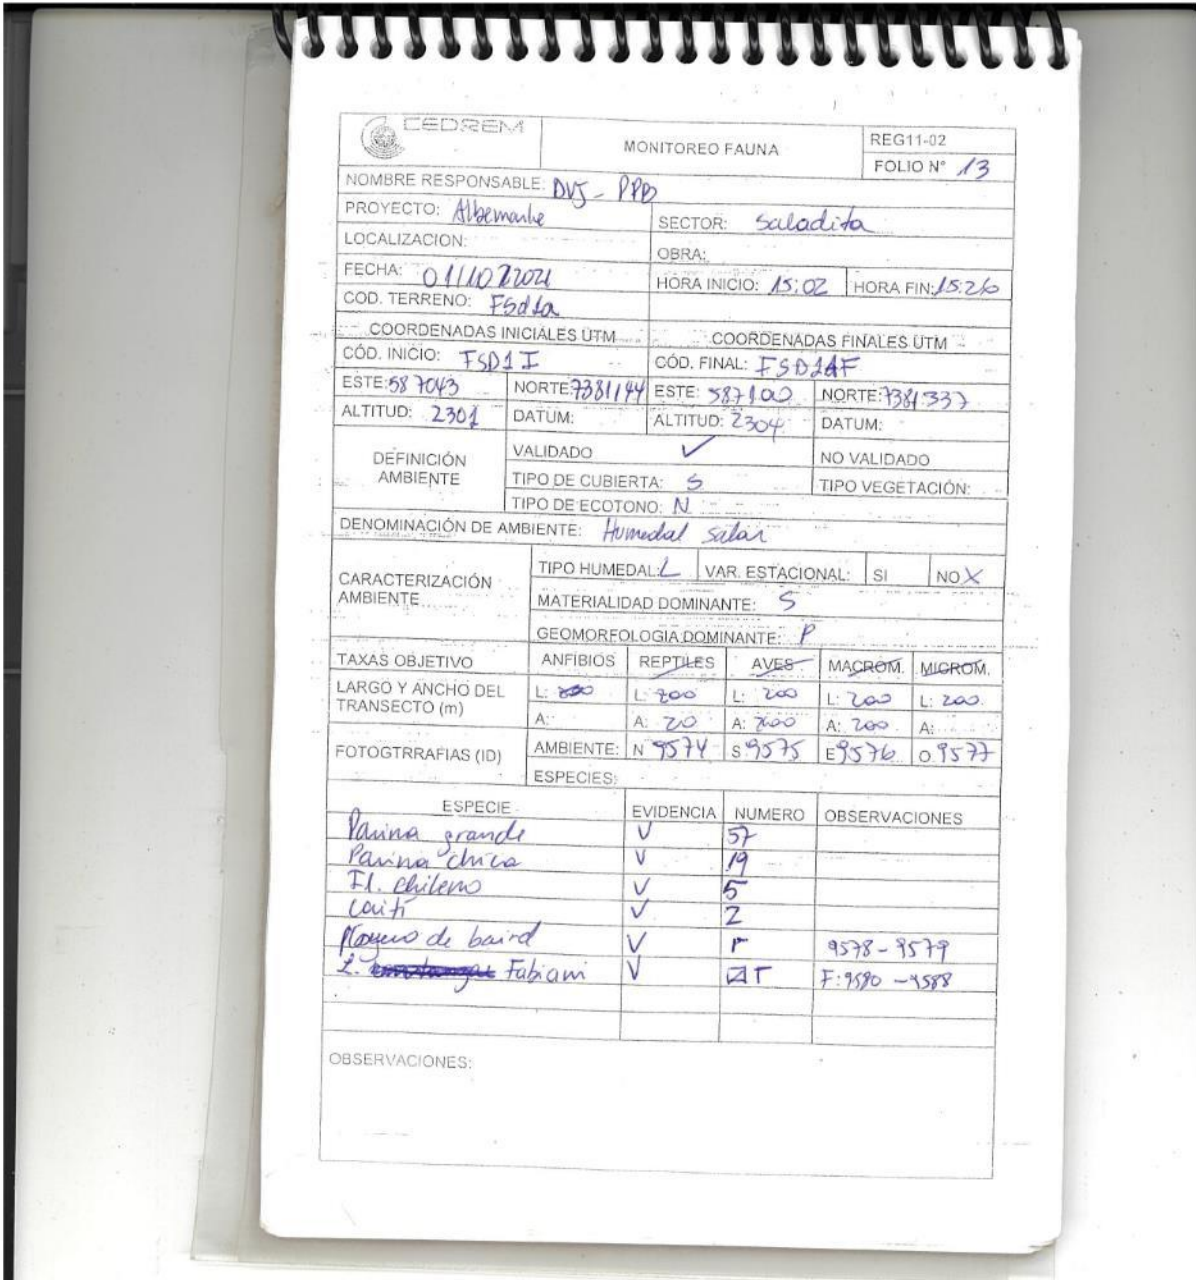 CEDREM
MONITOREO FAUNA
REG11-02
FOLIO N° 13
NOMBRE RESPONSABLE: DVJ - PPB
PROYECTO: Albemarle
SECTOR: Saladita
LOCALIZACION:
OBRA:
FECHA: 01/10/2021
HORA INICIO: 15:02 HORA FIN: 15:26
COD. TERRENO: FSd1a
COORDENADAS INICIALES UTM COORDENADAS FINALES UTM
CÓD. INICIO: FSD1 I CÓD. FINAL: FSD1AF
ESTE: 587043 NORTE: 7381194 ESTE: 587100 NORTE: 7381337
ALTITUD: 2301 DATUM: ALTITUD: 2304 DATUM:
DEFINICIÓN AMBIENTE
VALIDADO ✓ NO VALIDADO
TIPO DE CUBIERTA: S TIPO VEGETACIÓN:
TIPO DE ECOTONO: N
DENOMINACIÓN DE AMBIENTE: Humedal salar
CARACTERIZACIÓN AMBIENTE
TIPO HUMEDAL: L VAR. ESTACIONAL: SI NO X
MATERIALIDAD DOMINANTE: S
GEOMORFOLOGIA DOMINANTE: P
TAXAS OBJETIVO ANFIBIOS REPTILES AVES MACROM. MICROM.
LARGO Y ANCHO DEL TRANSECTO (m)
L: L: 200 L: 200 L: 200 L: 200
A: A: 20 A: 200 A: 200 A:
FOTOGTRRAFIAS (ID)
AMBIENTE: N 9574 S 9575 E 9576 O 9577
ESPECIES:
ESPECIE EVIDENCIA NUMERO OBSERVACIONES
Parina grande V 57
Parina chica V 19
Fl. chileno V 5
Caiti V 2
Playero de baird V 9578 - 9579
L. Fabiani V F: 9580 - 9588
OBSERVACIONES: